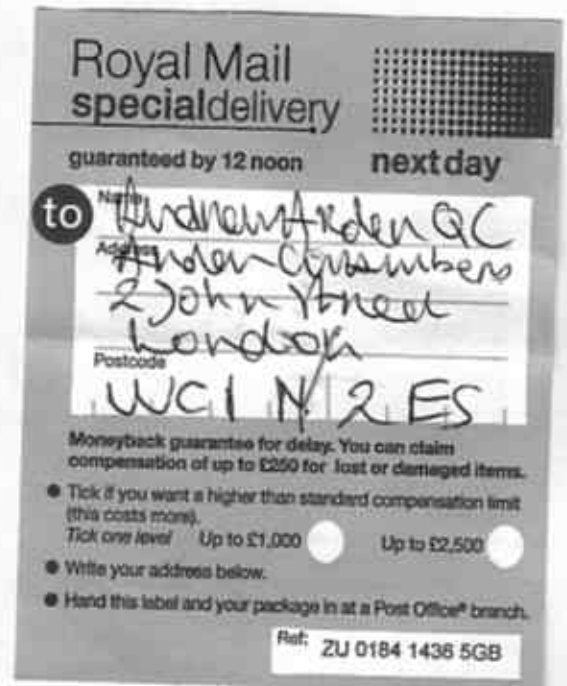 Royal Mail
specialdelivery
guaranteed by 12 noon
nextday
to
Name
Andrew Arden QC
Address
Arden Chambers
2 John Street
London
Postcode
WC1N 2ES
Moneyback guarantee for delay. You can claim
compensation of up to £250 for lost or damaged items.
Tick if you want a higher than standard compensation limit
(this costs more).
Tick one level Up to £1,000 Up to £2,500
Write your address below.
Hand this label and your package in at a Post Office® branch.
Ref: ZU 0184 1436 5GB